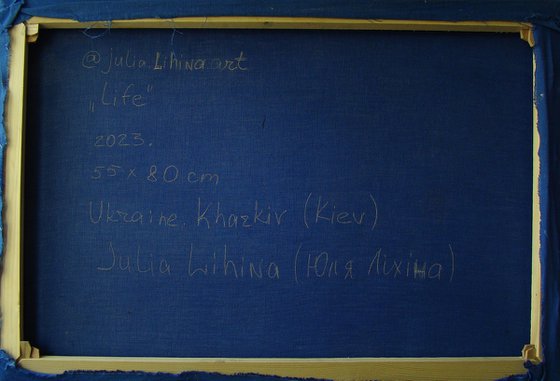 @julia.Lihina.art
„Life"
2023.
55 x 80 cm
Ukraine, Kharkiv (Kiev)
Julia Lihina (Юля Ліхіна)